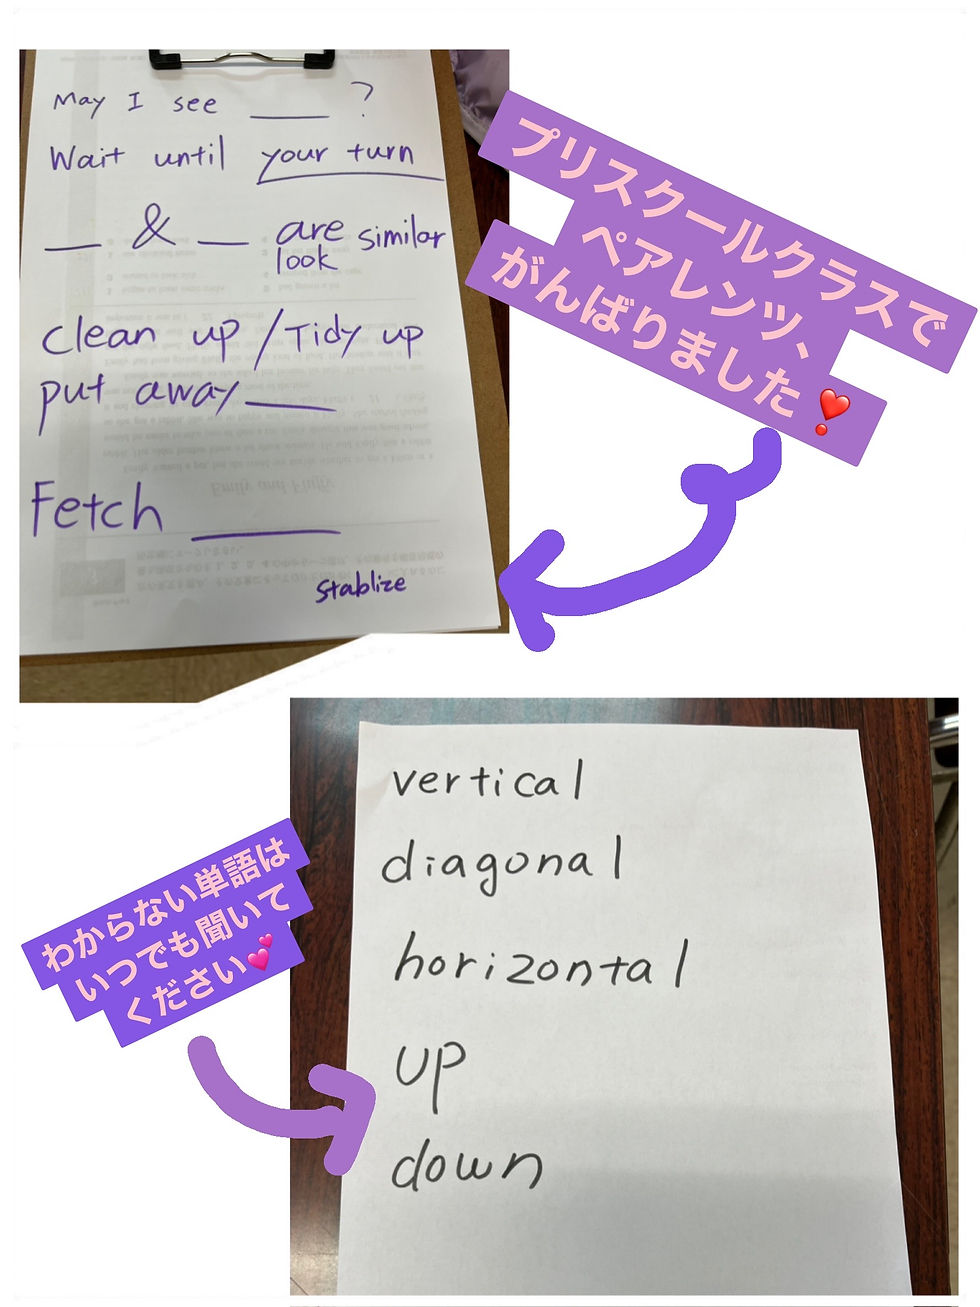 May I see ____ ?
Wait until your turn
__ & __ are similar
look
clean up / Tidy up
put away ____
Fetch ____
stablize
プリスクールクラスで
ペアレンツ、
がんばりました❣️
vertical
diagonal
horizontal
up
down
わからない単語は
いつでも聞いて
ください💕